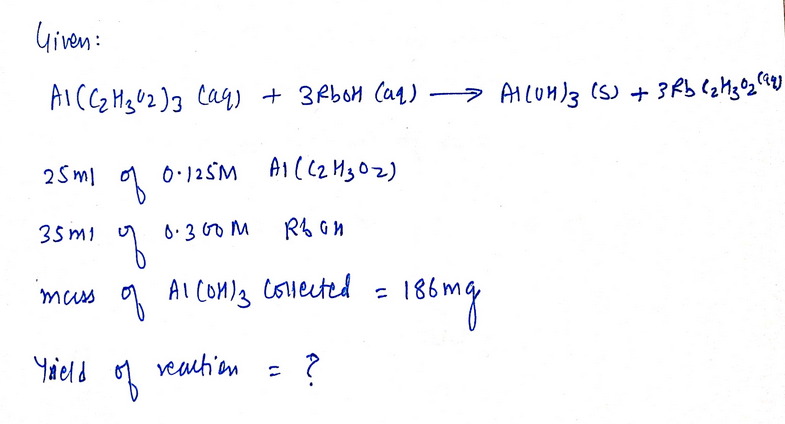 Given:
Al(C2H3O2)3 (aq) + 3RbOH (aq) ⟶ Al(OH)3 (s) + 3Rb C2H3O2 (aq)
25ml of 0.125M Al(C2H3O2)
35ml of 0.300M RbOH
mass of Al(OH)3 Collected = 186mg
Yield of reaction = ?